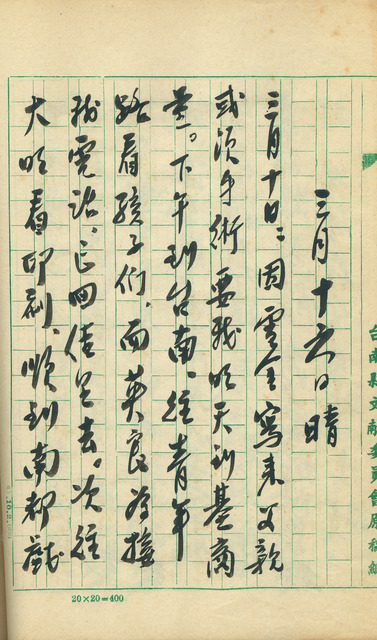 台南縣文獻委員會原稿紙
三月十六日 晴
三月十日:因雲金寫来父親
或須手術要我明天到基商
量。下午到台南、往青年
路看孩子们、而英良為接
我電話、已回佳里去。次往
大明看印刷、順到南都戲
20×20=400